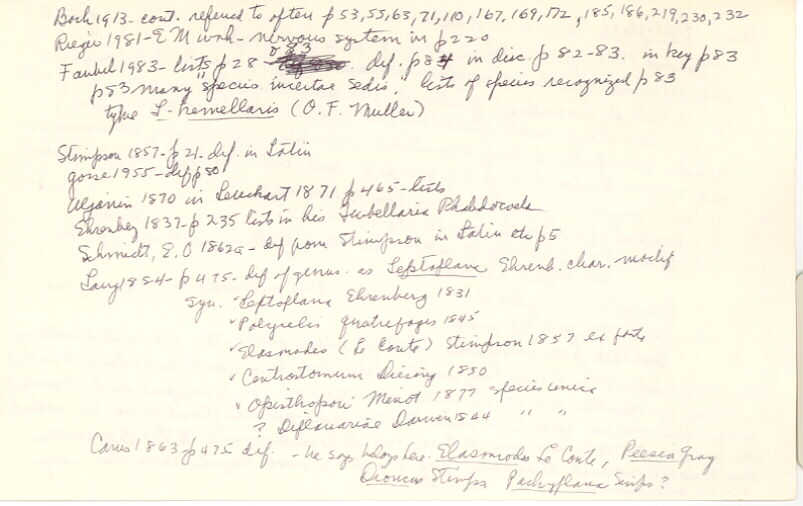 Bock 1913 - cont. referred to often p 53, 55, 63, 71, 110, 167, 169, 172, 185, 186, 219, 230, 232
Rieger 1981 - EM work - nervous system in p 220
Faubel 1983 - lists p 28 def. p 84 in disc. p 82-83. in key p 83
p 83 many "species incertae sedis", lists of species recognized p 83
type L. tremellaris (O. F. Muller)
Stimpson 1857 - p 21. dif. in Latin
gosse 1955 - dif p 80
Uljanin 1870 in Leuckart 1871 p 465 - lists
Ehrenberg 1837 - p 235 lists in his Turbellaria Rhabdocoela
Schmidt, E. O 1862a - dif from Stimpson in Latin etc p 5
Lang 1884 - p 475 - dif of genus. as Leptoplana Ehrenb. char. modif
Syn. ✓ Leptoplana Ehrenberg 1831
✓ Polycelis quatrefages 1845
✓ Elasmodes (Le Conte) Stimpson 1857 ex parte
✓ Centrostomum Diesing 1850
✓ Opisthoporus Minot 1877 species unica
? Diplanaria Darwin 1844 " "
Carus 1863 - p 475 dif. - he says belongs here. Elasmodes Le Conte, Peasia Gray
Dioncus Stimps. Pachyplana Stimps ?